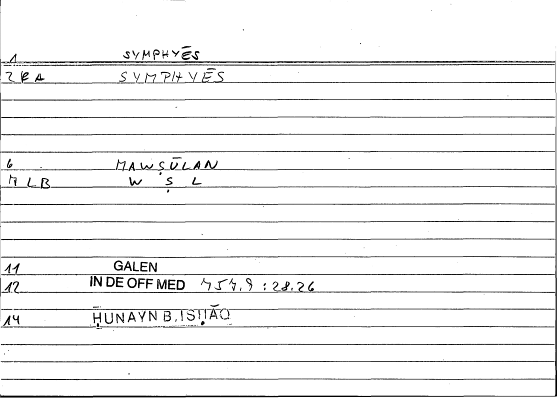 1 SYMPHYĒS
2 RA SYMPHYĒS
6 MAWṢŪLAN
7 LB W Ṣ L
11 GALEN
12 IN DE OFF MED : 28.26
14 ḤUNAYN B. ISḤĀQ